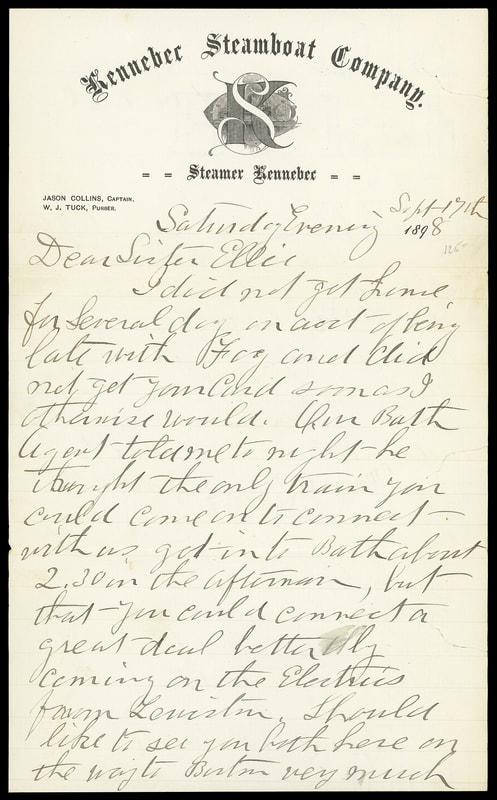 Kennebec Steamboat Company.
KS
= = Steamer Kennebec = =
JASON COLLINS, CAPTAIN.
W. J. TUCK, PURSER.
Sept 17th
Saturday Evening 1898
Dear Sister Ellie
I did not get home
for several day on acct of being
late with Fog and did
not get your Card soon as I
otherwise would. Our Bath
Agent told me to night he
thought the only train you
could come on to connect
with us got in to Bath about
2.30 in the afternoon, but
that you could connect a
great deal better by
coming on the Electrics
from Lewiston. Should
like to see you both here on
the way to Boston very much